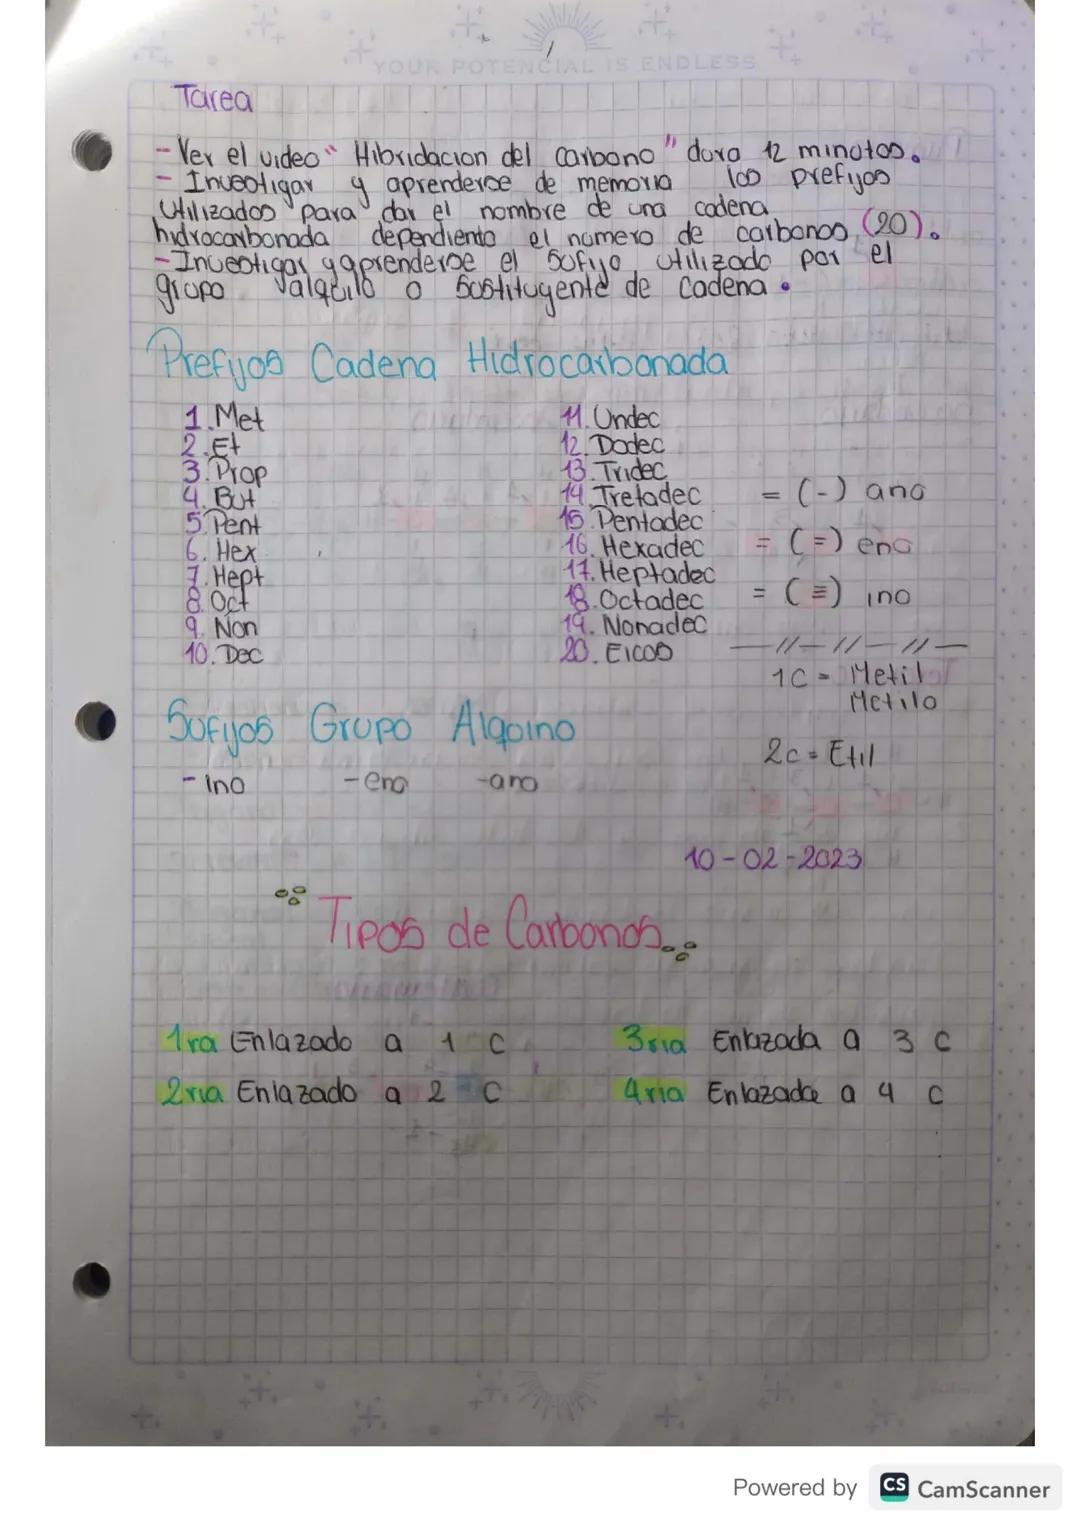 YOUR POTENCIAL IS ENDLESS
Tarea
- Ver el video "Hibridacion del carbono" dura 12 minutos.
- Investigar y aprenderse de memoria los prefijos
Utilizados para dar el nombre de una cadena
hidrocarbonada dependiento el numero de carbonos (20).
- Investigar y aprenderse el sufijo utilizado por el
grupo alquilo o sustituyente de cadena.
Prefijos Cadena Hidrocarbonada
1. Met
2. Et
3. Prop
4. But
5. Pent
6. Hex
7. Hept
8. Oct
9. Non
10. Dec
11. Undec
12. Dodec
13. Tridec
14. Tretadec
15. Pentadec
16. Hexadec
17. Heptadec
18. Octadec
19. Nonadec
20. Eicos
= (-) ano
= (=) eno
= (≡) ino
—//—//—//—
1C = Metil
Metilo
2c = Etil
Sufijos Grupo Alqoino
- ino - eno - ano
10-02-2023
Tipos de Carbonos
1ra Enlazado a 1 C
2ria Enlazado a 2 C
3ria Enlazada a 3 C
4ria Enlazada a 4 C
Powered by CS CamScanner